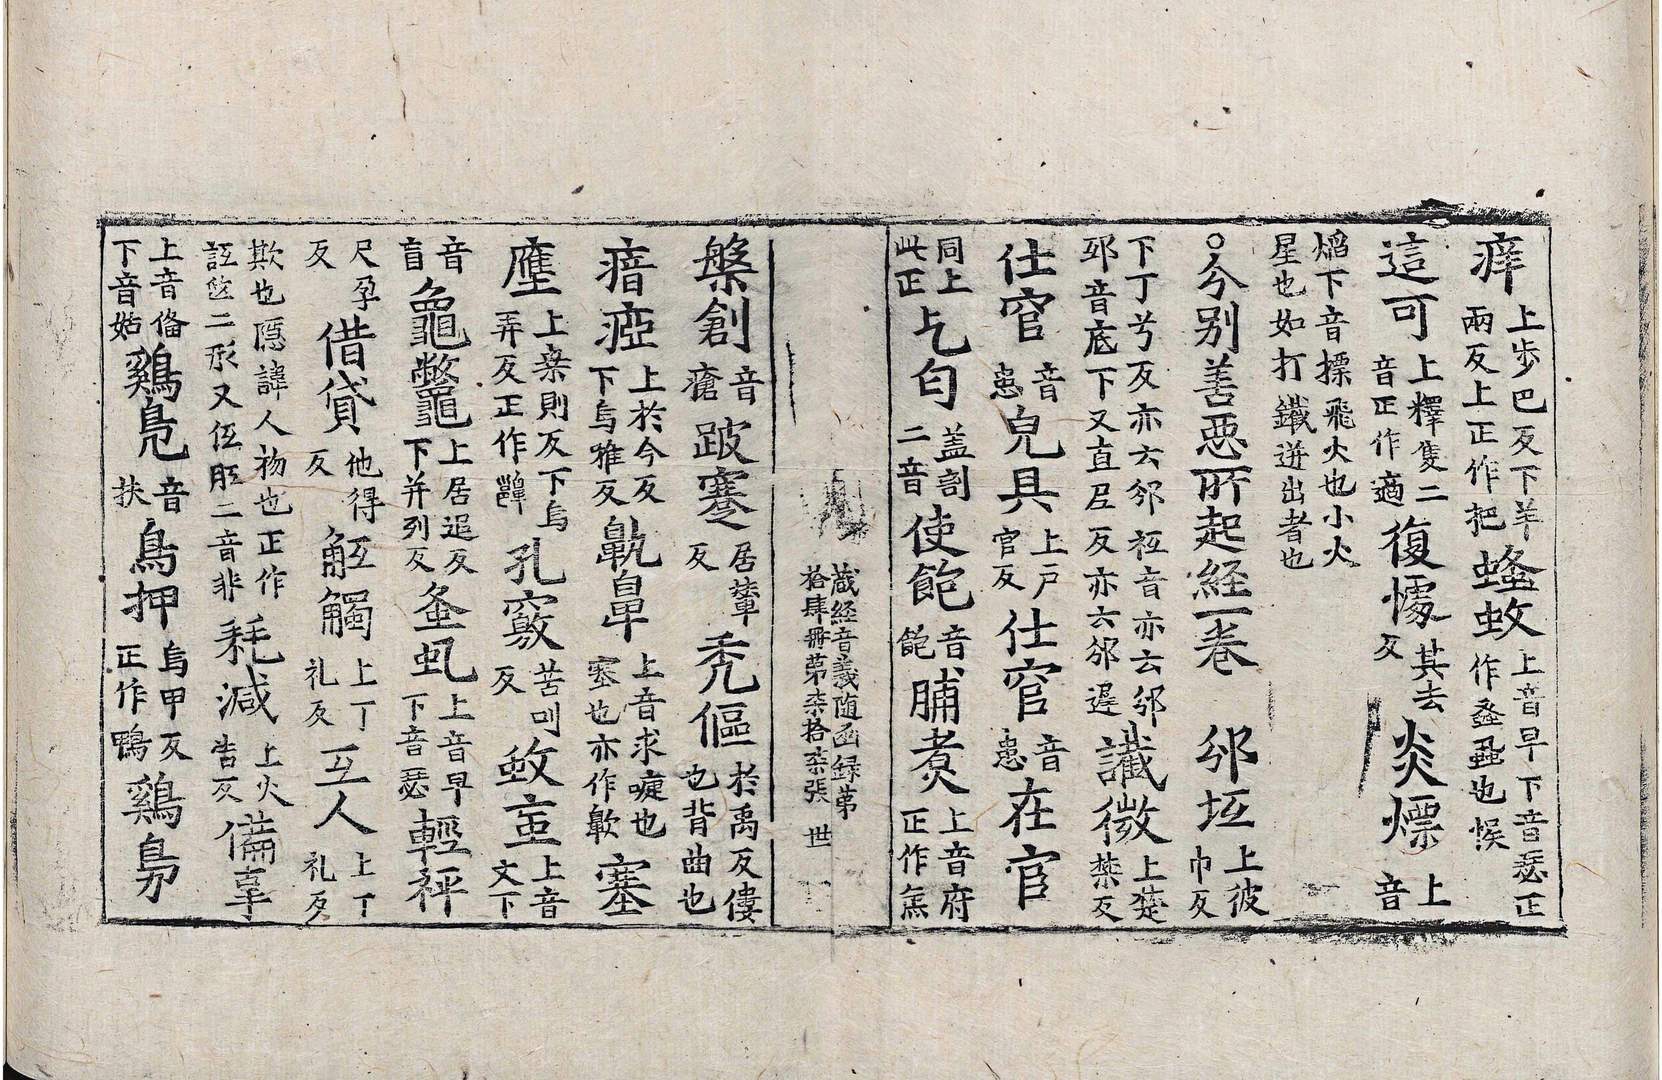 痒上步巴反下羊兩反上正作把蝵蚊上音早下音瑟正作螽蝨也悮
這可上釋隻二音正作適復懅其去反炎熛上音
熖下音摽飛火也小火星也如打鐵迸出者也
○分別善惡所起經一卷 邠坻上彼巾反
下丁兮反亦云邠祁音亦云邠邳音底下又直尼反亦云邠遲讖微上楚禁反
仕宦音患皃具上戶官反仕宦音患在官
同上此正乞匃盖割二音使飽音飽脯煮上音府正作焦
藏經音義随函録第拾肆冊第柒拾柒張 世
槃創音瘡跛蹇居輦反秃傴於禹反僂也背曲也
瘖瘂上於今反下烏雅反鼽鼻上音求嚏也塞也亦作齀塞
壅上柒則反下烏弄反正作齆孔竅苦叫反蚊䖟上音文下
音盲龜鼈上居追反下并列反蚤虱上音早下音瑟輕秤
尺孕反借貸他得反觝觸上丁礼反互人上丁礼反
欺也隱諱人物也正作詆㡳二形又伍胝二音非耗減上火告反備辜
上音俻下音姑鷄鳬音扶鳥押烏甲反正作鴨鷄鳬